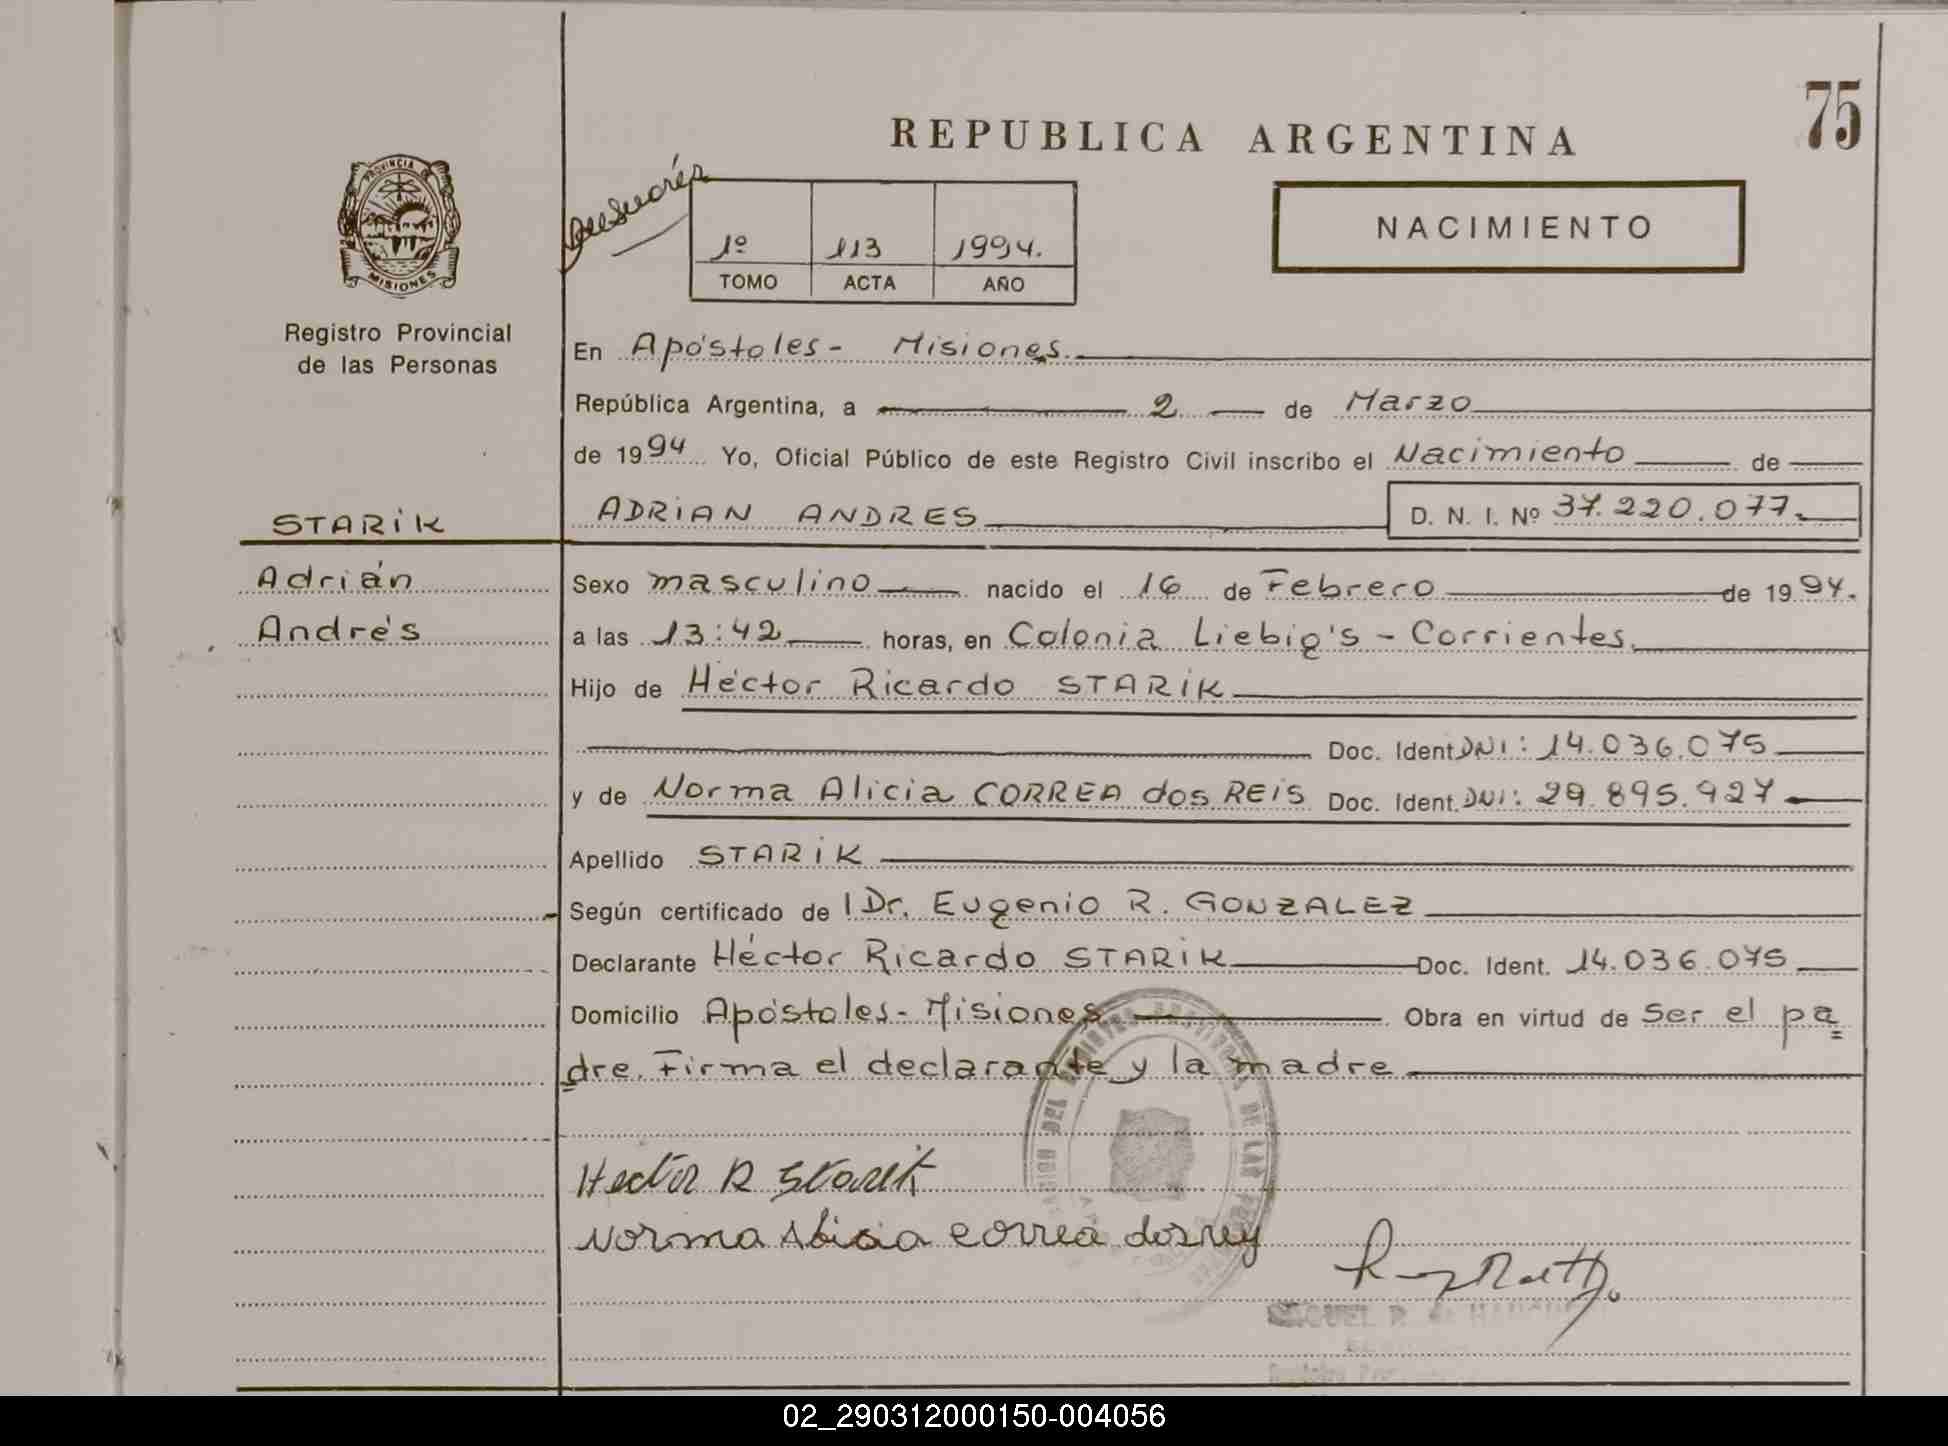 75
REPUBLICA ARGENTINA
NACIMIENTO
1º 113 1994.
TOMO ACTA AÑO
PROVINCIA DE
MISIONES
Registro Provincial
de las Personas
En Apóstoles - Misiones.
República Argentina, a 2 de Marzo
de 1994 Yo, Oficial Público de este Registro Civil inscribo el Nacimiento de
STARIK
ADRIAN ANDRES D. N. I. Nº 37.220.077.
Adrián
Andrés
Sexo masculino nacido el 16 de Febrero de 1994.
a las 13:42 horas, en Colonia Liebig's - Corrientes.
Hijo de Héctor Ricardo STARIK
Doc. Ident. DNI: 14.036.075
y de Norma Alicia CORREA dos REIS Doc. Ident. DNI: 29.895.927
Apellido STARIK
Según certificado de l Dr. Eugenio R. GONZALEZ
Declarante Héctor Ricardo STARIK Doc. Ident. 14.036.075
Domicilio Apóstoles - Misiones Obra en virtud de Ser el pa
dre. Firma el declarante y la madre
Hector R Starik
Norma Alicia correa dos rey
02_290312000150-004056